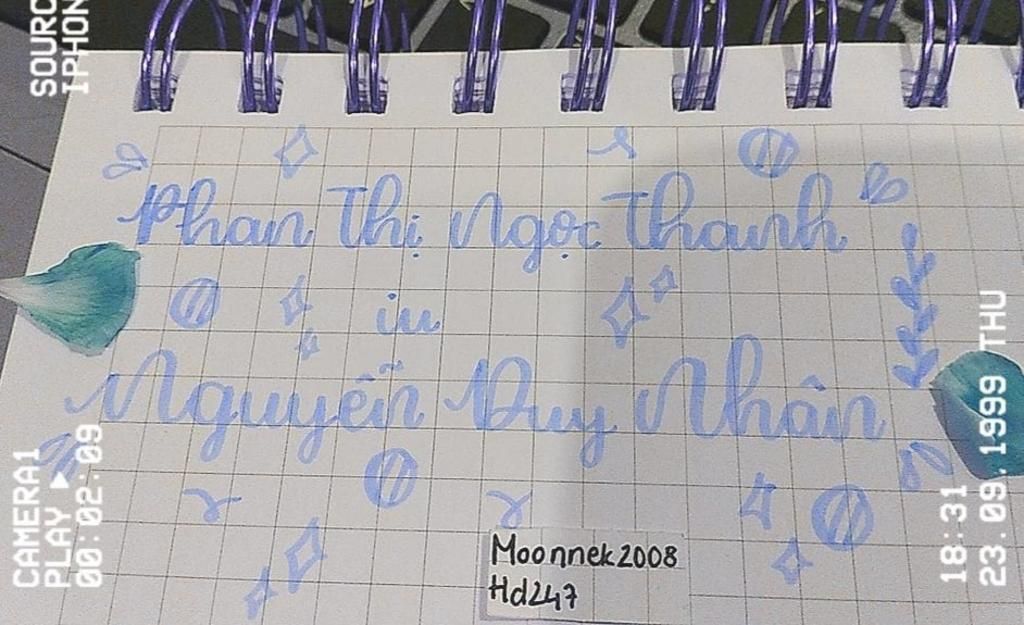 SOURC
IPHON
Phan Thị Ngọc Thanh
iu
Nguyễn Duy Nhân
CAMERA1
PLAY ▶
00:02:09
18:31
23.09.1999 THU
Moonnek2008
Hd247